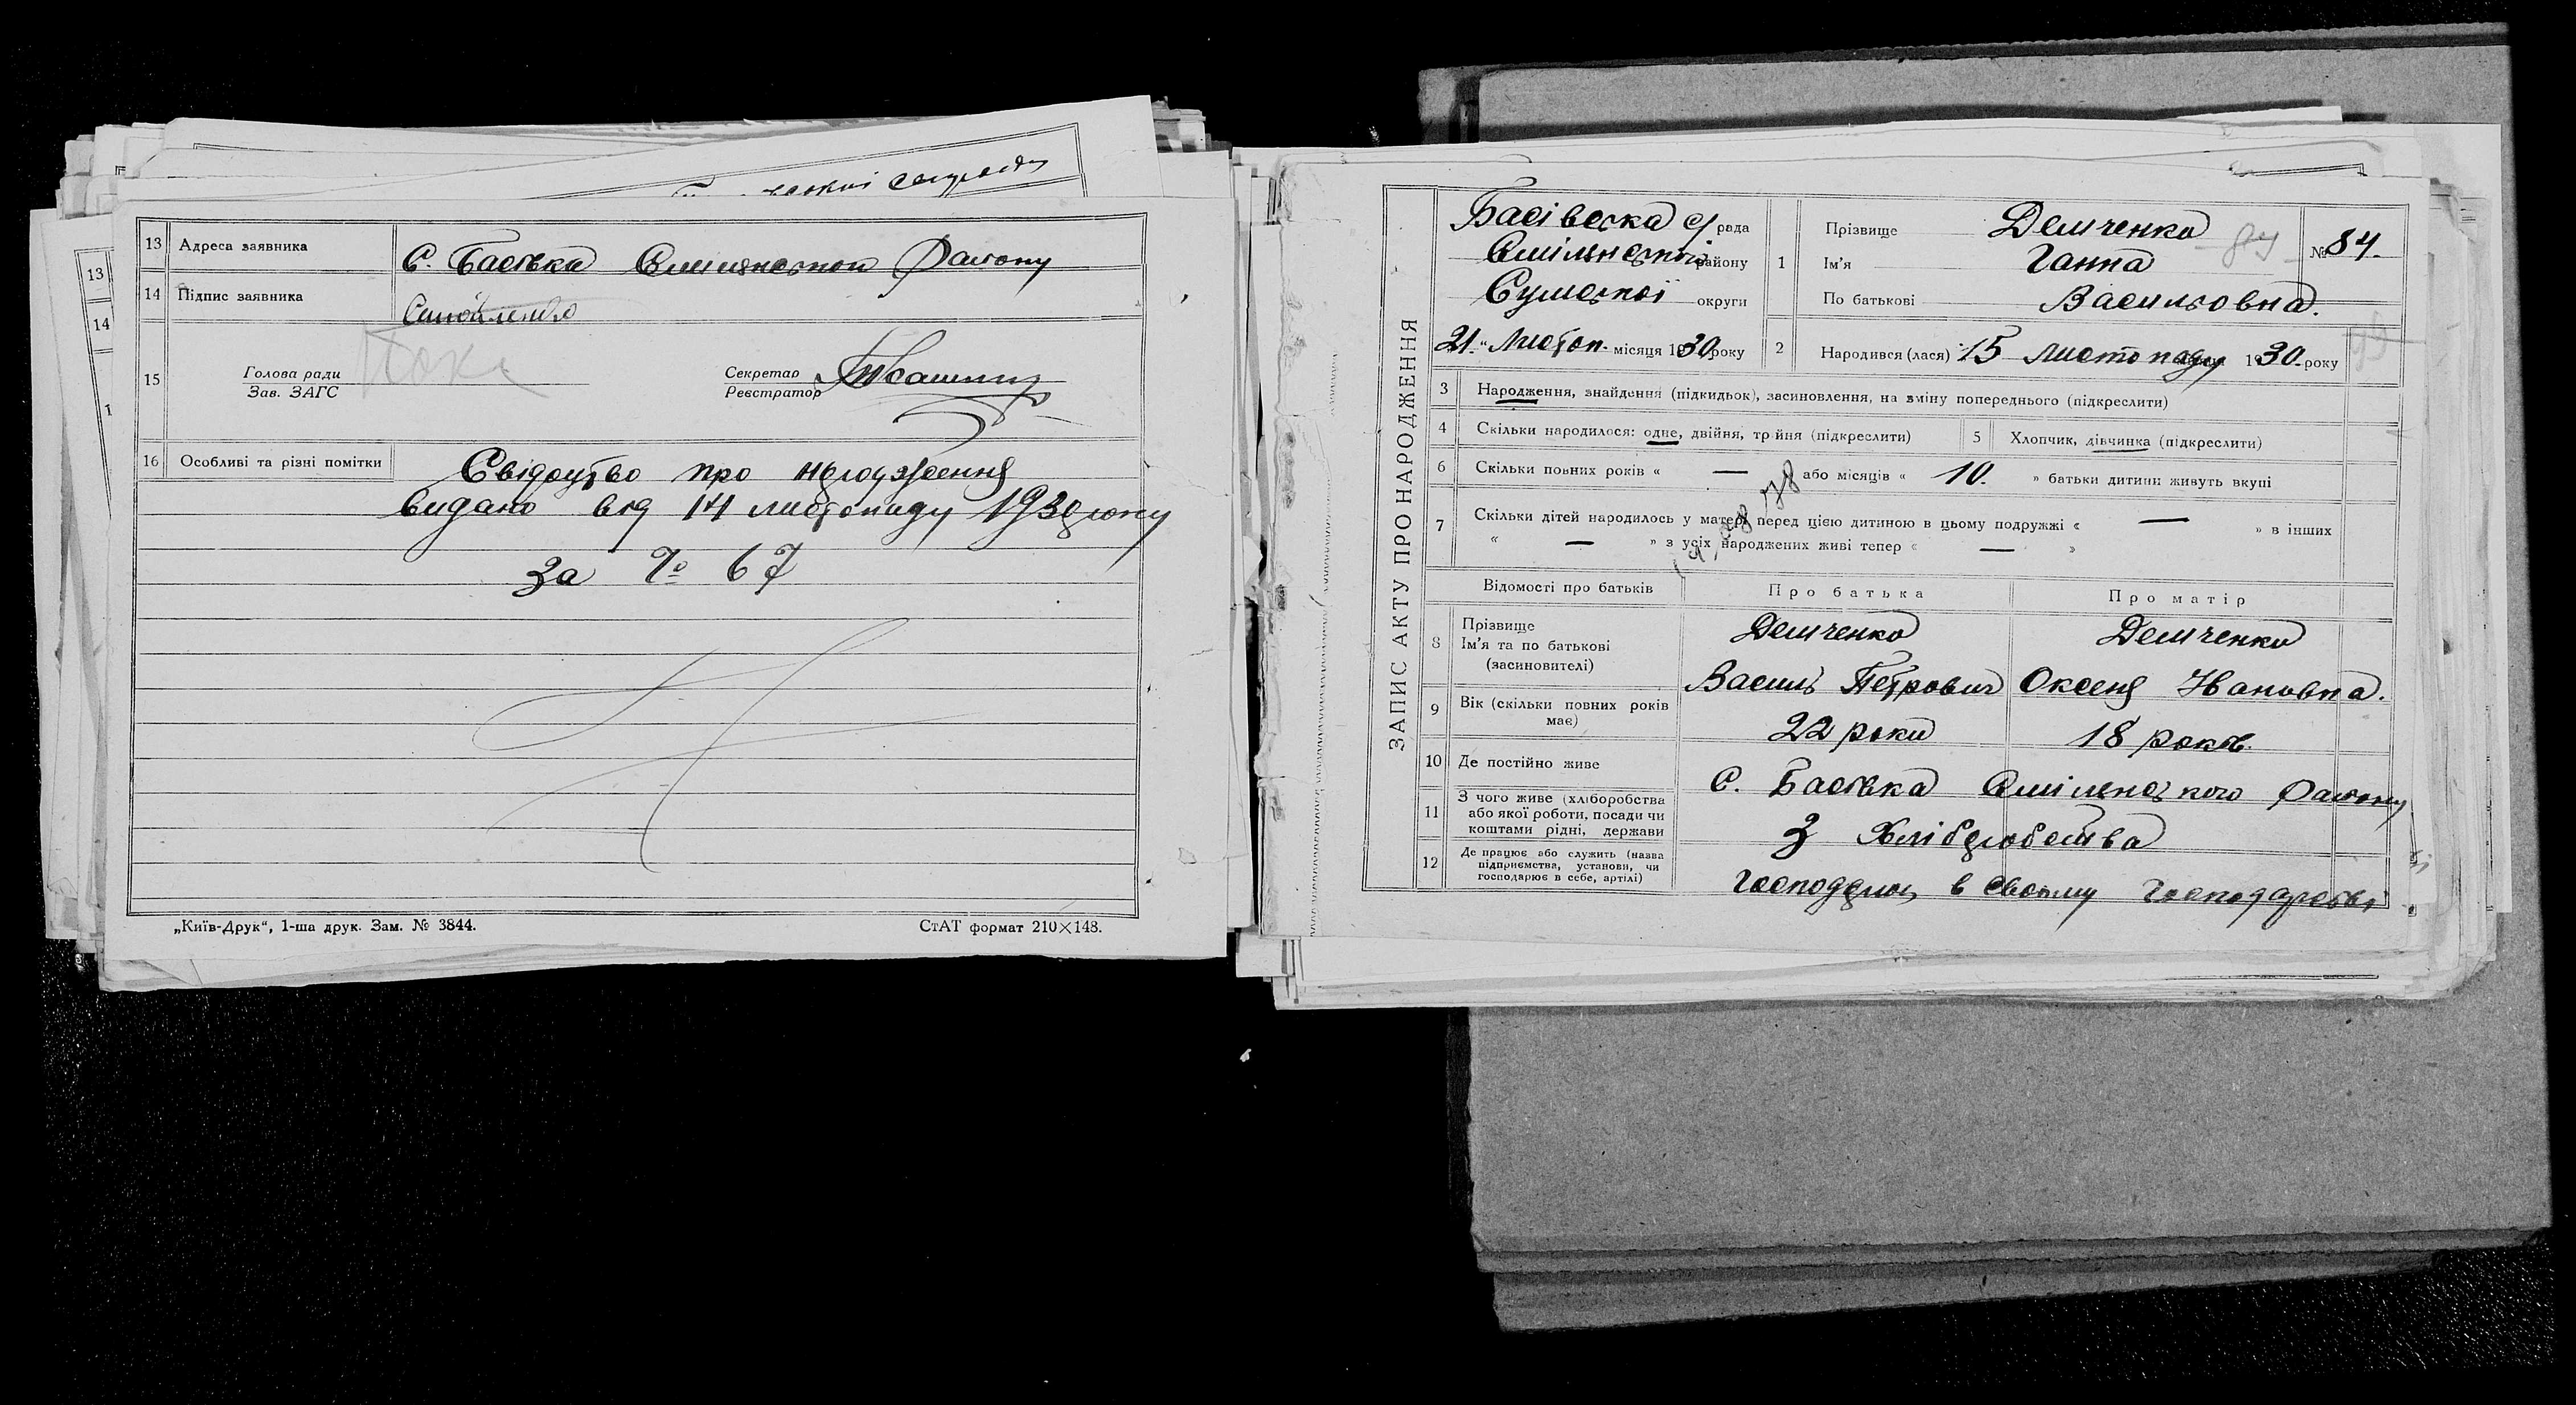 13 Адреса заявника С. Басівка Смілянськои Району
14 Підпис заявника
15 Голова ради
Зав. ЗАГС
Секретар
Реєстратор
16 Особливі та різні помітки Свідоцтво про народження
видано від 14 листопаду 1930 року
за № 67
„Київ-Друк“, 1-ша друк. Зам. № 3844. СтАТ формат 210×148.
13
14
ЗАПИС АКТУ ПРО НАРОДЖЕННЯ
Басівська с/рада
району
Сумської округи
21 “ Листоп. місяця 1930 року
1 Прізвище Демченко
Ім'я Ганна
По батькові Васильовна.
84
№ 84.
2 Народився (лася) 15 листопаду 1930 року
3 Народження, знайдення (підкидьок), засиновлення, на зміну попереднього (підкреслити)
4 Скільки народилося: одне, двійня, трійня (підкреслити) 5 Хлопчик, дівчинка (підкреслити)
6 Скільки повних років « — або місяців « 10. » батьки дитини живуть вкупі
7 Скільки дітей народилось у матері перед цією дитиною в цьому подружжі « — » в інших
« — » з усіх народжених живі тепер « — »
Відомості про батьків Про батька Про матір
8 Прізвище Демченко Демченко
Ім'я та по батькові
(засиновителі) Василь Петрович Оксеня Ивановна.
9 Вік (скільки повних років
має) 22 роки 18 років.
10 Де постійно живе С. Басівка Смілянського Району
11 З чого живе (хліборобства
або якої роботи, посади чи
коштами рідні, держави З Хліборобства
12 Де працює або служить (назва
підприємства, установи, чи
господарює в себе, артілі) в своєму Господарстві